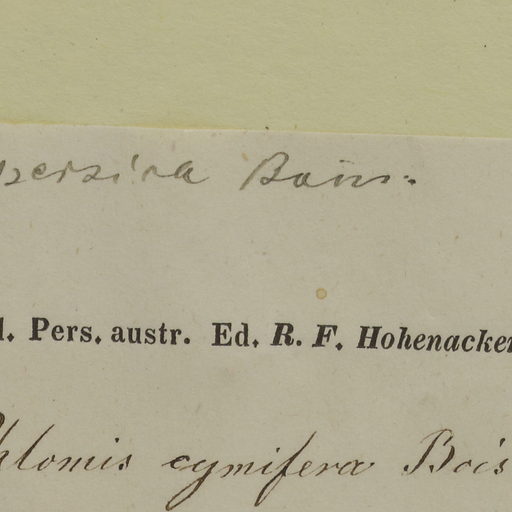 persica Boiss.
l. Pers. austr. Ed. R. F. Hohenacker
hlomis cymifera Bois